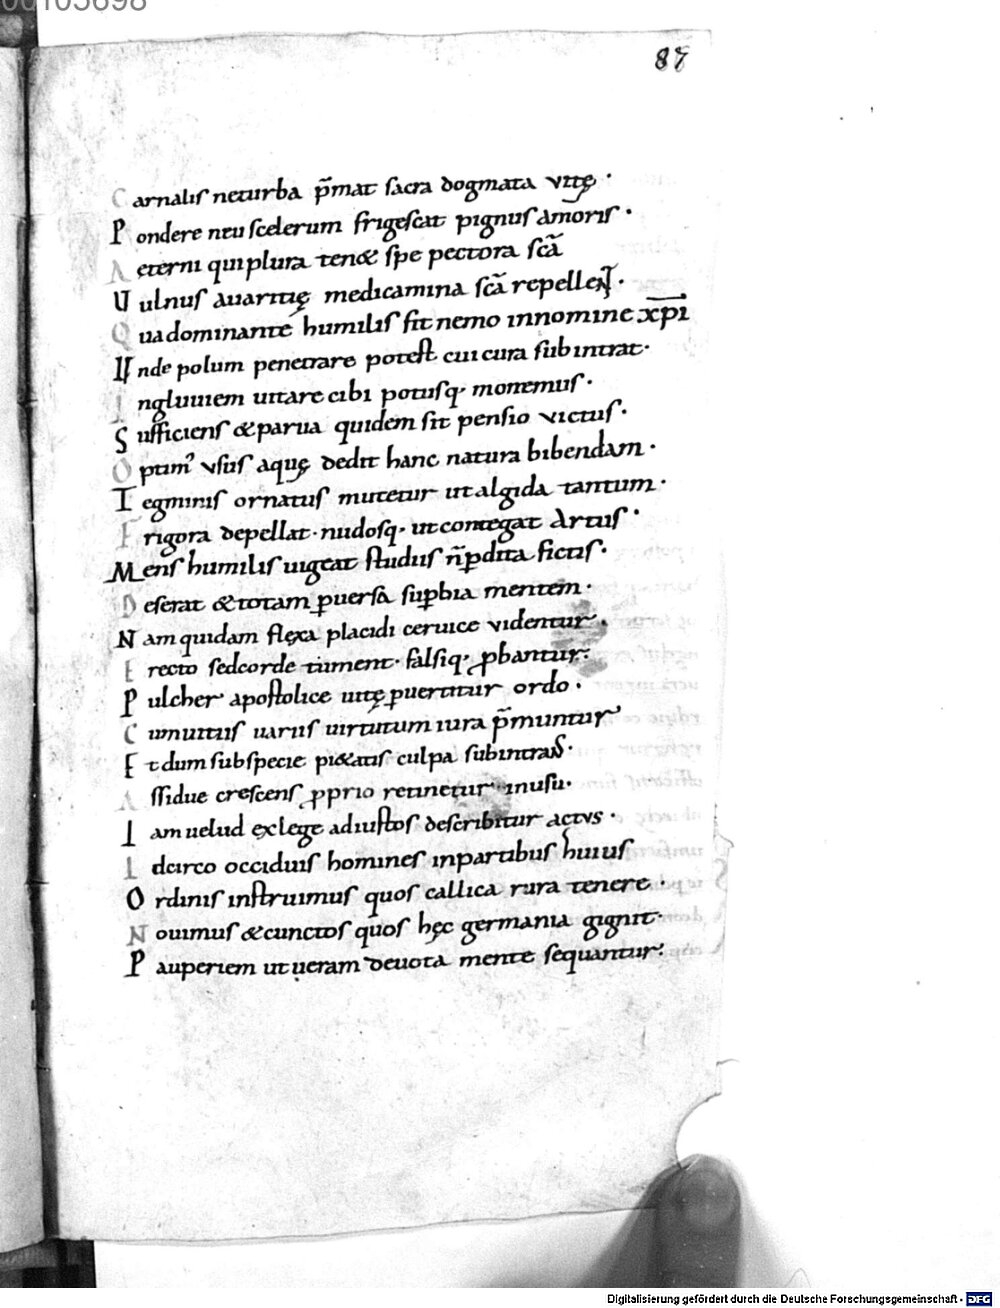 00105698
87
Carnalis neturba p̄mat sacra dogmata vitę·
Pondere neu scelerum frigescat pignus amoris·
Aeterni qui plura ten& spe pectora scā
Uulnus auaritię medicamina scā repellent·
Qua dominante humilis sit nemo innomine xp̄i
Unde polum penetrare potest cui cura subintrat·
Ingluuiem uitare cibi potusq· monemus·
Sufficiens & parua quidem sit pensio victus·
Optim' vsus aquę dedit hanc natura bibendam·
Tegminis ornatus mutetur ut algida tantum·
Frigora depellat· nudosq· ut contegat artus·
Mens humilis uigeat studiis n̄ p̄dita fictis·
Deserat & totam ꝑuersa suꝑbia mentem·
Nam quidam flexa placidi ceruice videntur·
Erecto sedcorde tument· falsiq· ꝓbantur·
Pulcher apostolice uitę ꝑuertitur ordo·
Cumuitiis uariis uirtutum iura p̄muntur
Et dum sub specie pi&atis culpa subintrans·
Assidue crescens ꝓprio retinetur inusu·
Iam uelud exlege adiustos describitur actvs·
Idcirco occiduis homines inpartibus huius
Ordinis instruimus quos callica rura tenere·
Nouimus & cunctos quos hęc germania gignit·
Pauperiem ut ueram deuota mente sequantur·
Digitalisierung gefördert durch die Deutsche Forschungsgemeinschaft - DFG